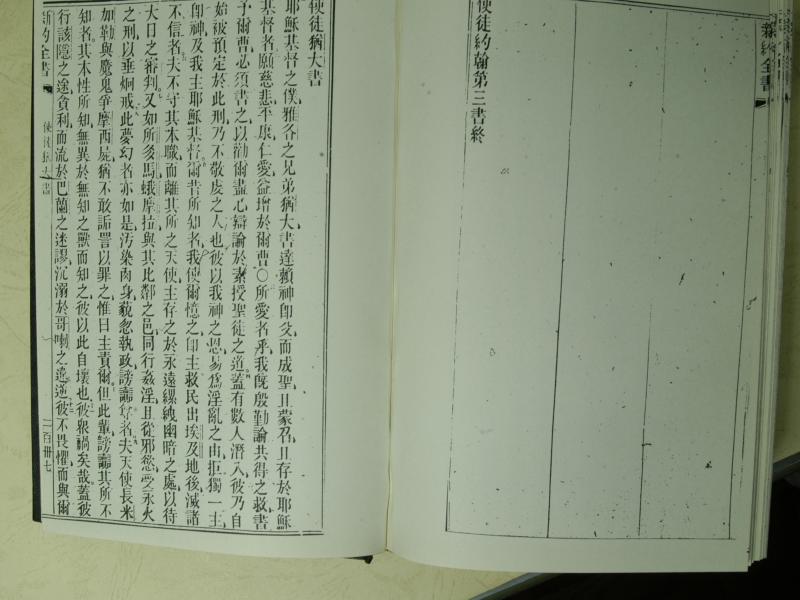 新約全書
使徒約翰第三書終
使徒猶大書
耶穌基督之僕雅各之兄弟猶大書達賴神即父而成聖且蒙召且存於耶穌
基督者願慈悲平康仁愛益增於爾曹○所愛者乎我旣殷勤論共得之救書
予爾曹必須書之以勸爾盡心辯論於素授聖徒之道蓋有數人潛入彼乃自
始被預定於此刑乃不敬虔之人也彼以我神之恩易為淫亂之由拒獨一主
卽神及我主耶穌基督爾昔所知者我使爾憶之卽主救民出埃及地後滅諸
不信者夫不守其本職而離其所之天使主存之於永遠縲絏幽暗之處以待
大日之審判又如所多馬蛾摩拉與其比鄰之邑同行姦淫且從邪慾受永火
之刑以垂炯戒此夢幻者亦如是汚染肉身藐忽執政謗讟尊者夫天使長米
加勒與魔鬼爭摩西屍猶不敢詬詈以罪之惟曰主責爾但此輩謗讟其所不
知者其本性所知無異於無知之獸而知之彼以此自壞也彼服禍矣哉蓋彼
行該隱之途貪利而流於巴蘭之迷謬沉溺於哥喇之違逆彼不畏懼而與爾
新約全書 使徒猶大書 二百卅七